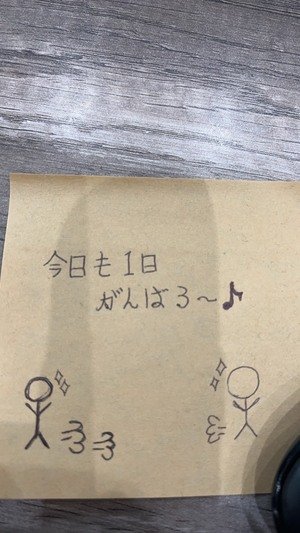 今日も1日
がんばろ〜♪